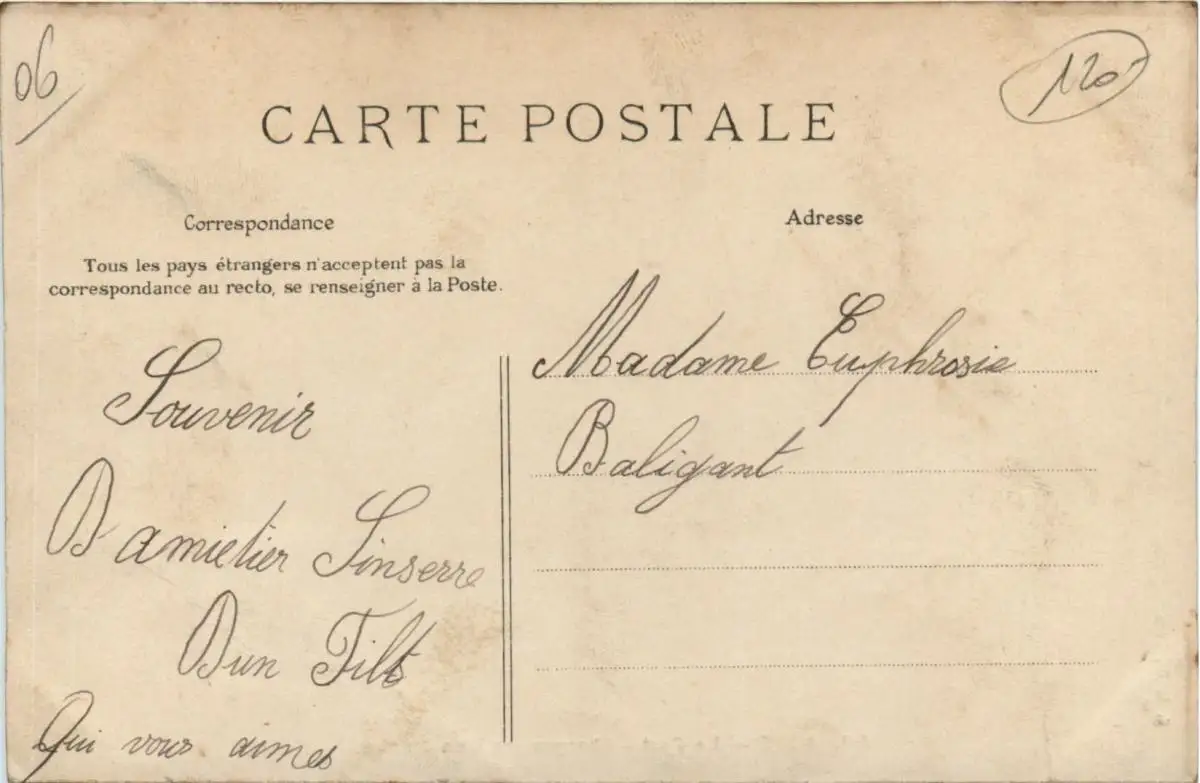 06
120
CARTE POSTALE
Correspondance
Tous les pays étrangers n'acceptent pas la
correspondance au recto, se renseigner à la Poste.
Souvenir
D amietier Sinserre
Dun Filt
Qui vous aimes
Adresse
Madame Euphrosie
Baligant